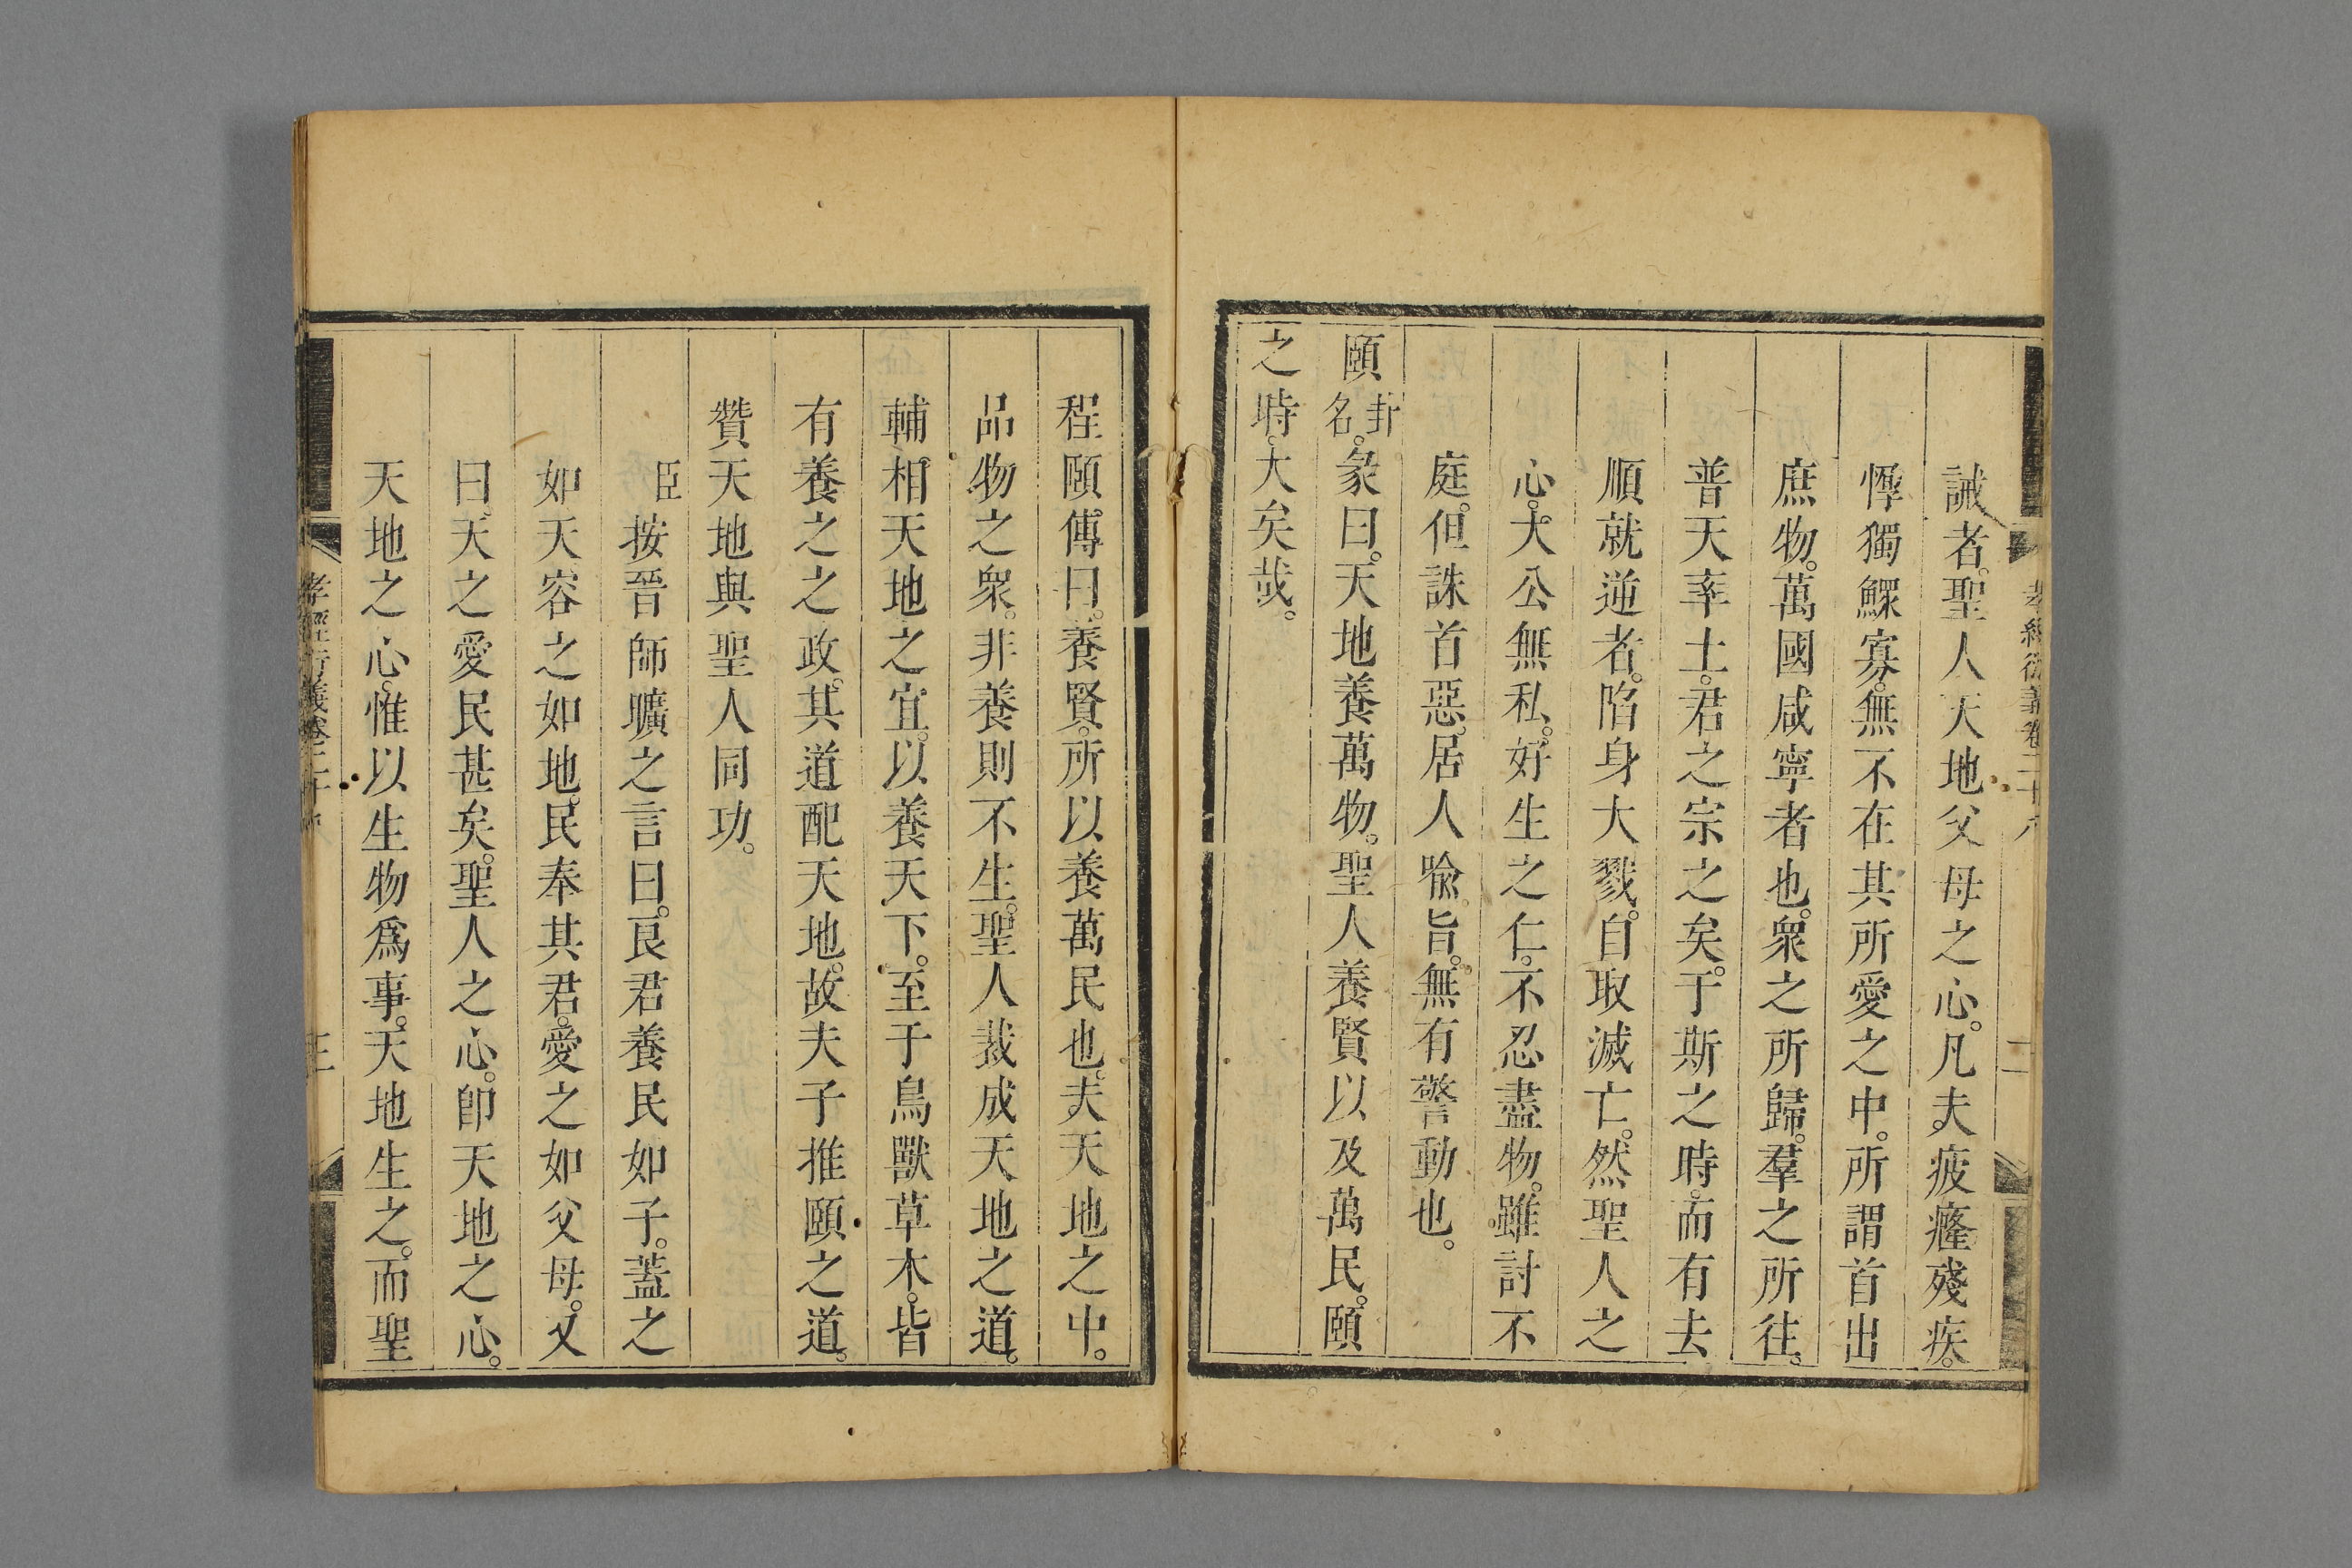 孝經衍義卷二十八
二
誡者。聖人天地父母之心。凡夫疲癃殘疾。
惸獨鰥寡。無不在其所愛之中。所謂首出
庶物。萬國咸寧者也。衆之所歸。羣之所往。
普天率土。君之宗之矣。于斯之時。而有去
順就逆者。陷身大戮。自取滅亡。然聖人之
心。大公無私。好生之仁。不忍盡物。雖討不
庭。但誅首惡。居人喩旨。無有警動也。
頤卦名。彖曰。天地養萬物。聖人養賢以及萬民。頤
之時。大矣哉。
程頤傳曰。養賢。所以養萬民也。夫天地之中。
品物之衆。非養則不生。聖人裁成天地之道。
輔相天地之宜。以養天下。至于鳥獸草木。皆
有養之之政。其道配天地。故夫子推頤之道。
贊天地與聖人同功。
臣按晉師曠之言曰。良君養民如子。蓋之
如天。容之如地。民奉其君。愛之如父母。又
曰。天之愛民甚矣。聖人之心。卽天地之心。
天地之心。惟以生物爲事。天地生之。而聖
孝經衍義卷二十八
三